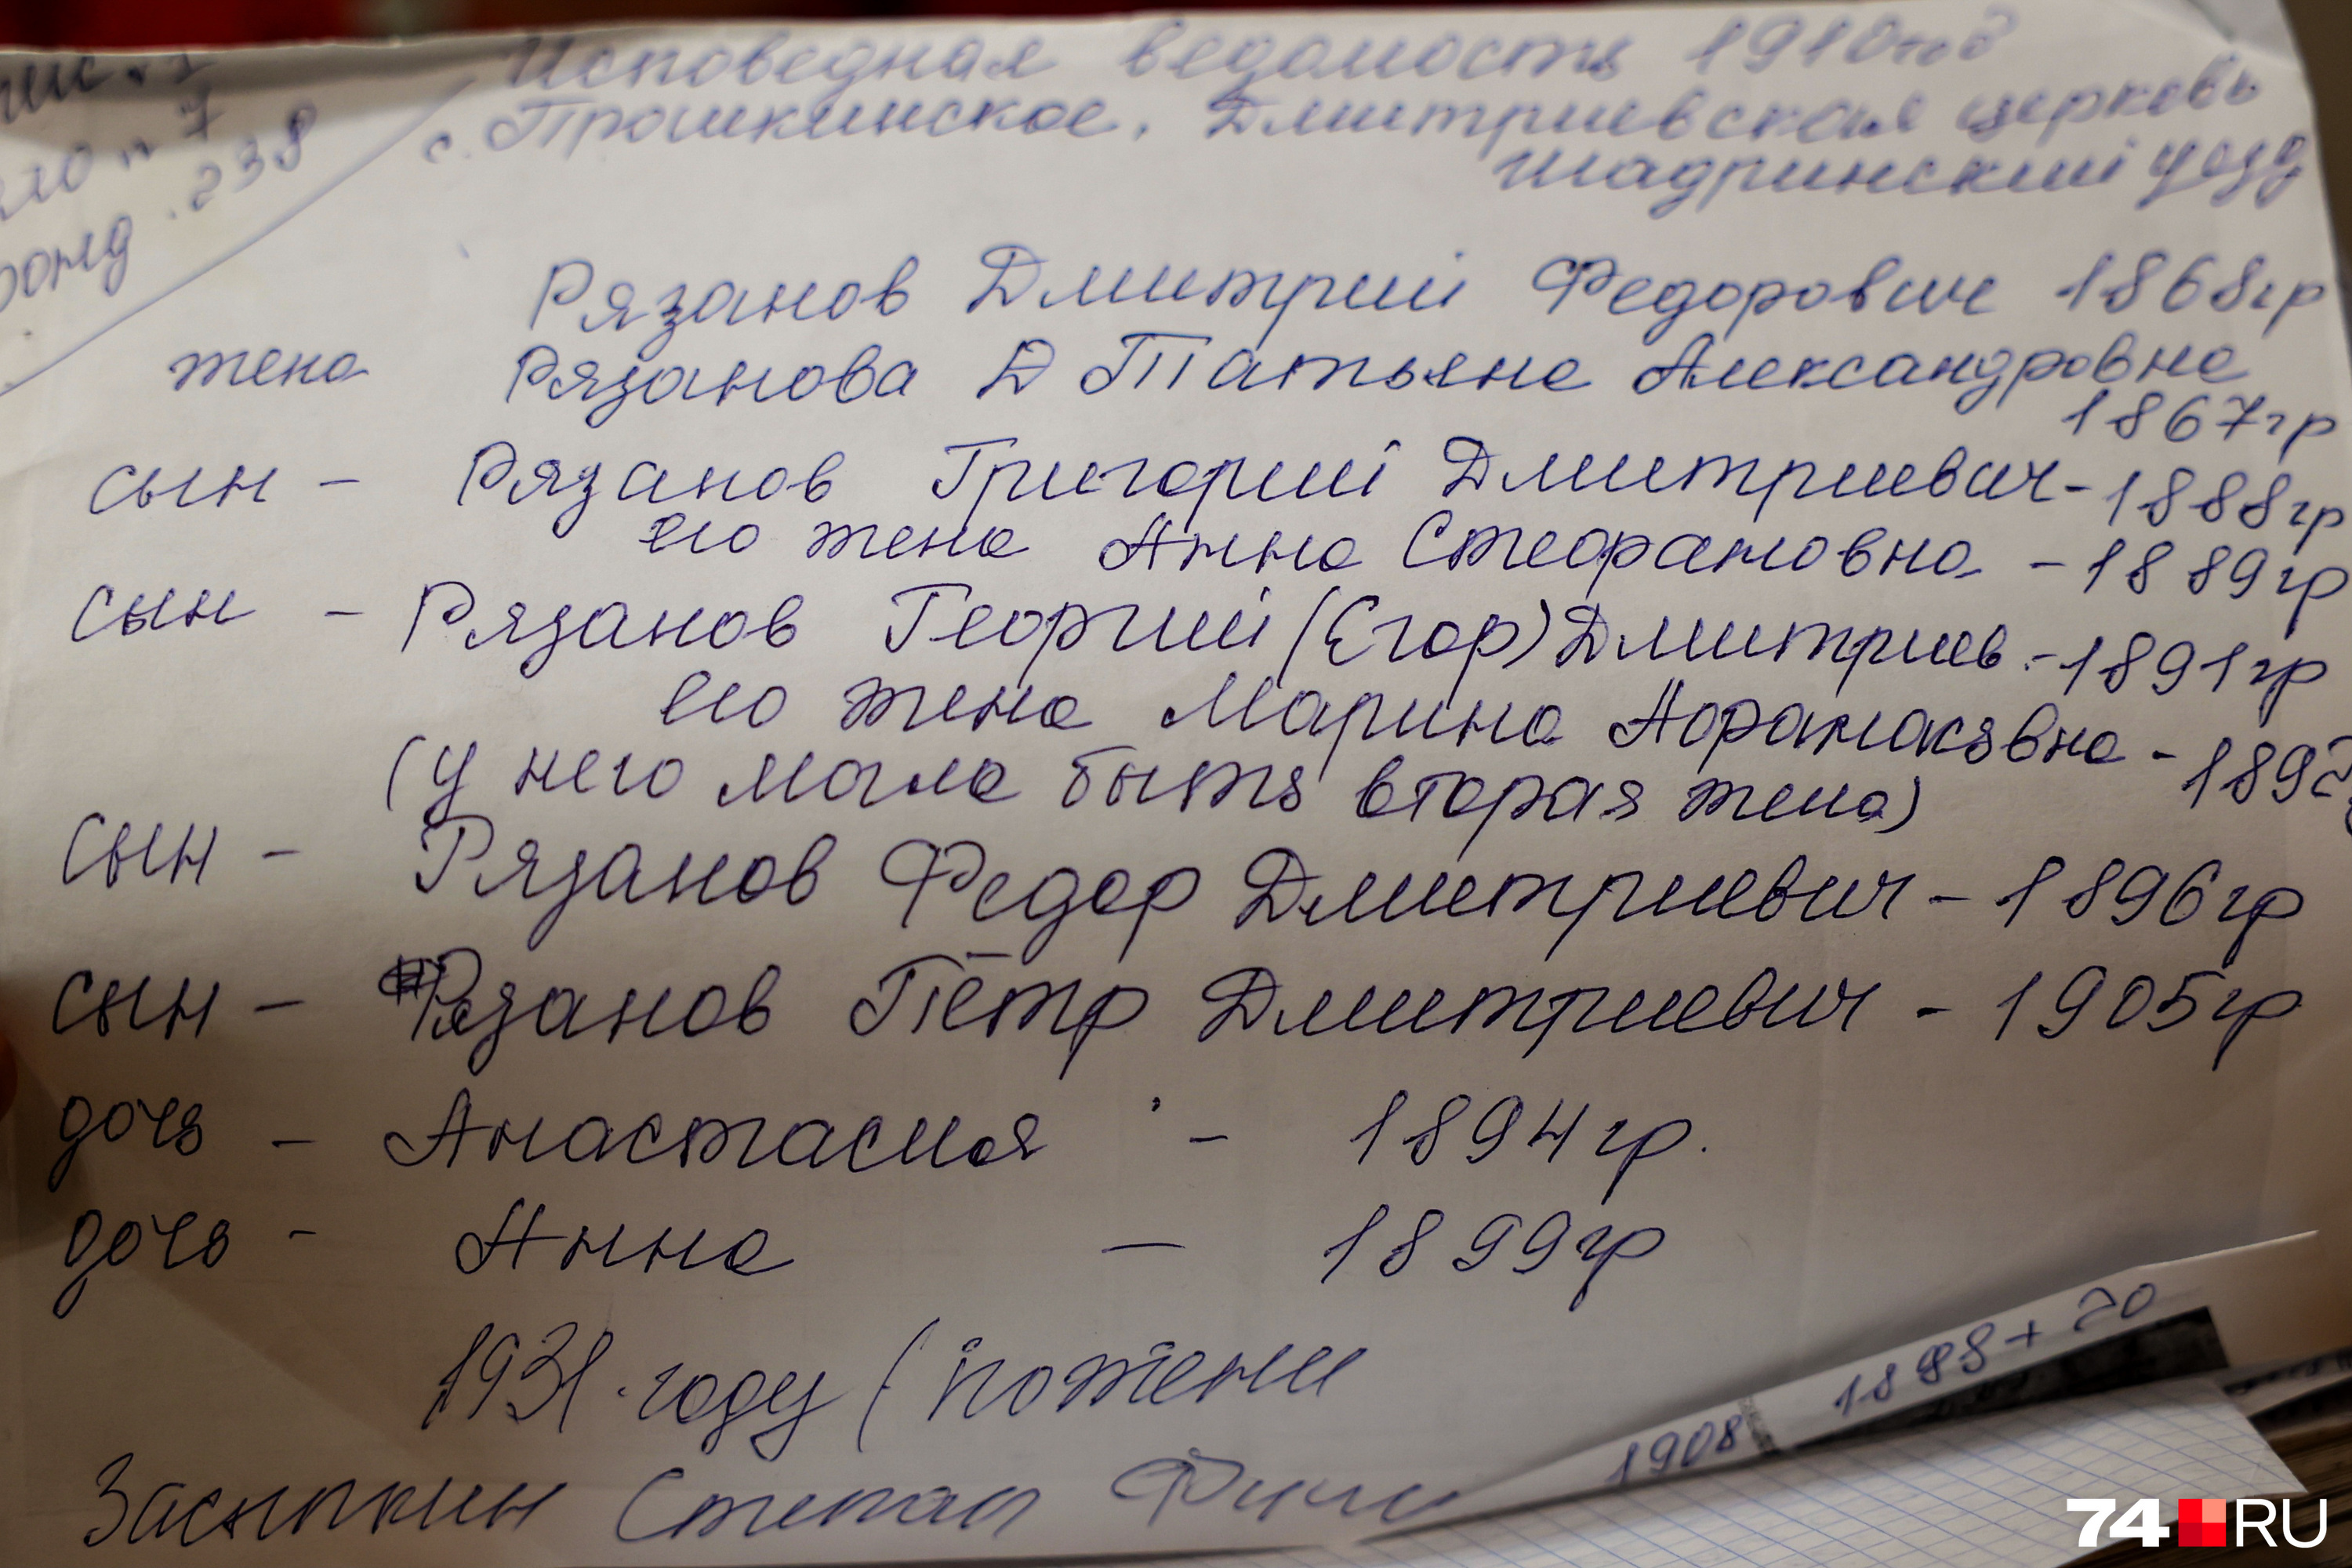 Исповедная ведомость 1910 год
с. Прошкинское, Дмитриевская церковь
Шадринский уезд
238
Рязанов Дмитрий Федорович 1868гр
жена Рязанова Д Татьяна Александровна
1867гр
сын - Рязанов Григорий Дмитриевич - 1888гр
его жена Анна Стефановна - 1889гр
сын - Рязанов Георгий (Егор) Дмитриев. - 1891гр
его жена Марина Афанасявна - 1892
(у него могла быть вторая жена)
сын - Рязанов Федор Дмитриевич - 1896гр
сын - Рязанов Пётр Дмитриевич - 1905гр
дочь - Анастасия - 1894гр.
дочь - Анна - 1899гр
1931 году (
Засыпкин Степан
1908
1898+20
74 RU